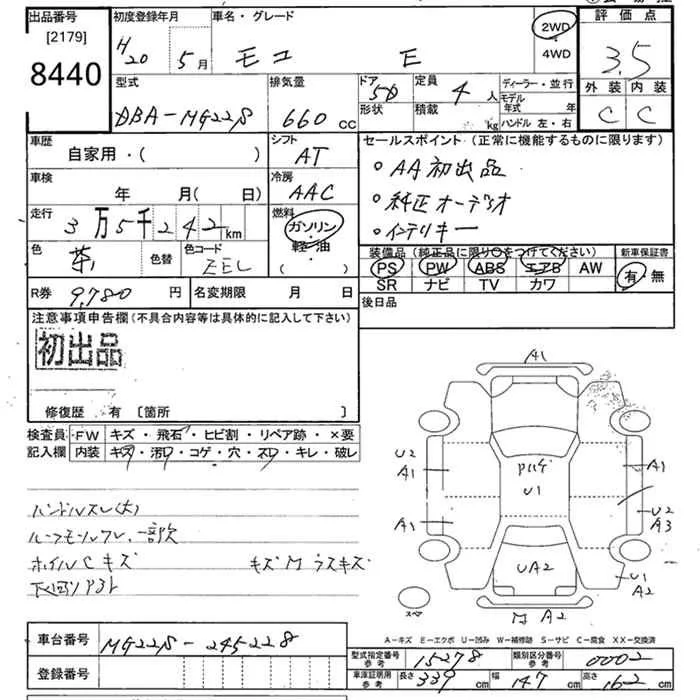 出品番号
[2179]
8440
初度登録年月
H20 5月
車名・グレード
モコ E
2WD
・
4WD
評価点
3.5
外装 内装
C C
型式
DBA-MG22S
排気量
660 cc
ドア 5D
形状
定員 4人
積載 kg
ディーラー・並行
モデル年式 年
ハンドル 左・右
車歴
自家用・( )
シフト
AT
セールスポイント(正常に機能するものに限ります)
・AA初出品
・純正オーデオ
・インテリキー
車検
年 月( 日)
冷房
AAC
走行
3万5千242km
燃料
ガソリン
・
軽油
( )
色
茶
色替
色コード
ZEL
装備品(純正品に限り○をつけてください)
PS PW ABS エアB AW
SR ナビ TV カワ
新車保証書
有 無
R券 9,780円
名変期限 月 日
後日品
注意事項申告欄(不具合内容等は具体的に記入して下さい)
初出品
修復歴 有 [箇所 ]
検査員記入欄
FW キズ・飛石・ヒビ割・リペア跡・×要
内装 キズ・汚レ・コゲ・穴・スレ・キレ・破レ
ハンドルスレ(大)
ルーフモールワレ、一部欠
ホイルCキズ キズM ラスキズ
下回リアト
A1
U2
A1
A1
U1
A1
U2
A3
UA2
U1
A2
M A2
スペア
A-キズ E-エクボ U-凹み W-補修跡 S-サビ C-腐食 XX-交換済
車台番号
MG22S-245228
登録番号
型式指定番号 参考 15278
類別区分番号 参考 0002
車庫証明用 参考
長さ 339 cm
幅 147 cm
高さ 162 cm